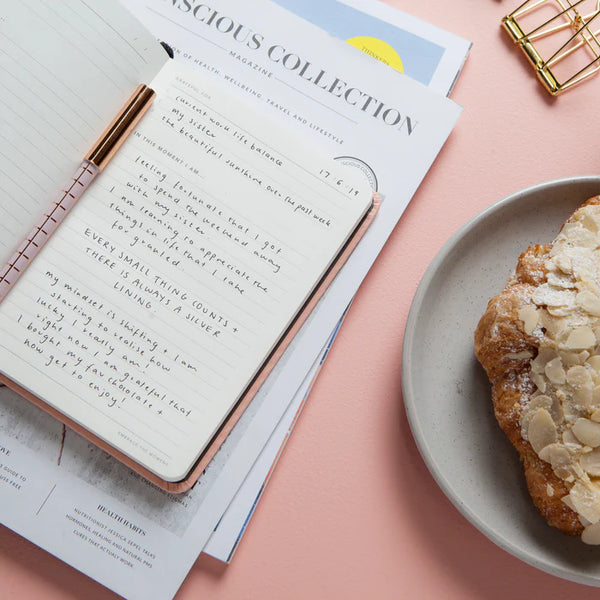 THINKERS
CONSCIOUS COLLECTION
MAGAZINE
OF HEALTH, WELLBEING, TRAVEL AND LIFESTYLE
GRATEFUL FOR
17.6.19
current work life balance
my sister
the beautiful sunshine over the past week
IN THIS MOMENT I AM...
feeling fortunate that I got
to spend the weekend away
with my sister
I am learning to appreciate the
things in life that I take
for granted
EVERY SMALL THING COUNTS +
THERE IS ALWAYS A SILVER
LINING
my mindset is shifting + I am
starting to realise how
lucky I really am!
right now I am grateful that
I bought my fav chocolate +
now get to enjoy!
EMBRACE THE MOMENT
HEALTH HABITS
NUTRITIONIST JESSICA SEPEL TALKS
HORMONES, HEALING AND NATURAL PMS
CURES THAT ACTUALLY WORK
GUIDE TO
FREE